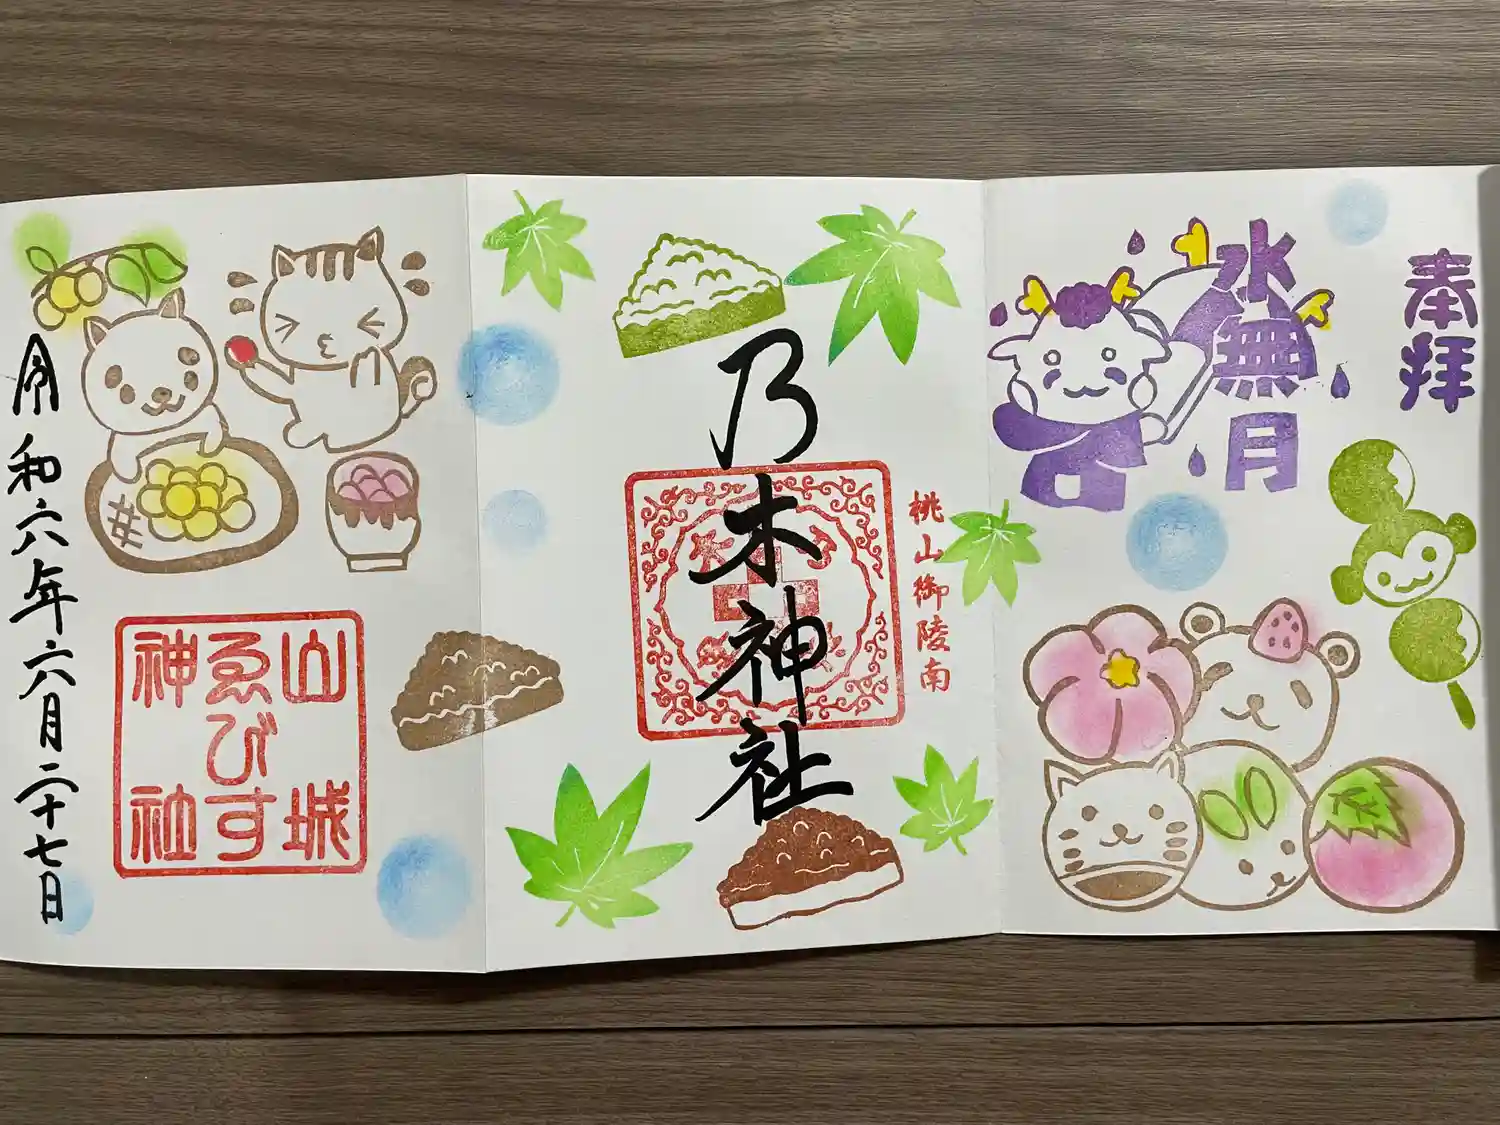 奉拝
水無月
桃山御陵南
乃木神社
山城
ゑびす
神社
令和六年六月二十七日